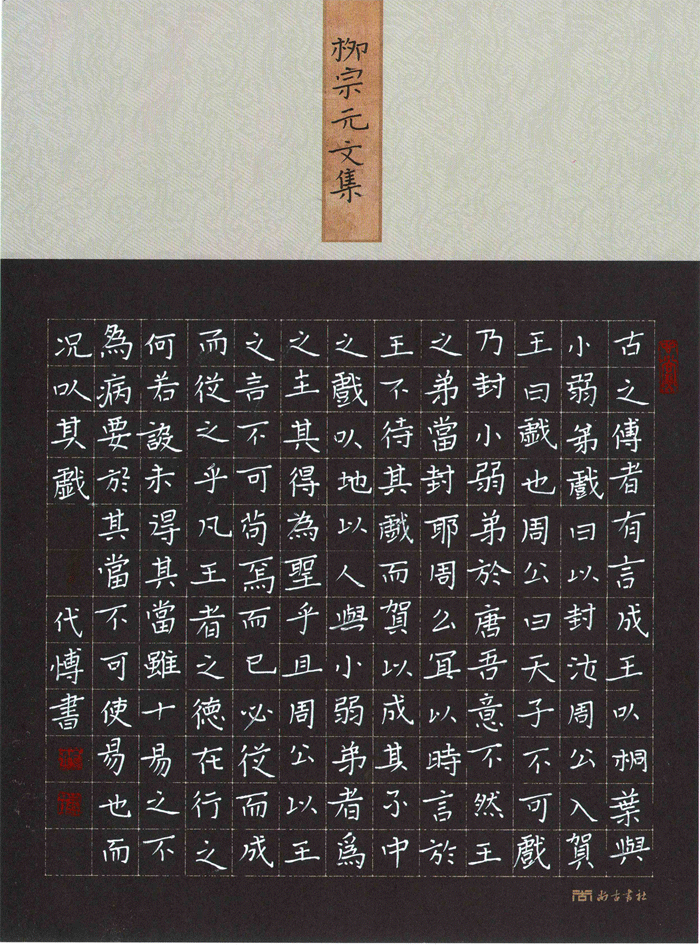 柳宗元文集
古之傳者有言成王以桐葉與
小弱弟戲曰以封汝周公入賀
王曰戲也周公曰天子不可戲
乃封小弱弟於唐吾意不然王
之弟當封耶周公宜以時言於
王不待其戲而賀以成其不中
之戲以地以人與小弱弟者為
之主其得為聖乎且周公以王
之言不可苟焉而已必從而成
而從之乎凡王者之德在行之
何若設未得其當雖十易之不
為病要於其當不可使易也而
况以其戲
代愽書
尚古書社